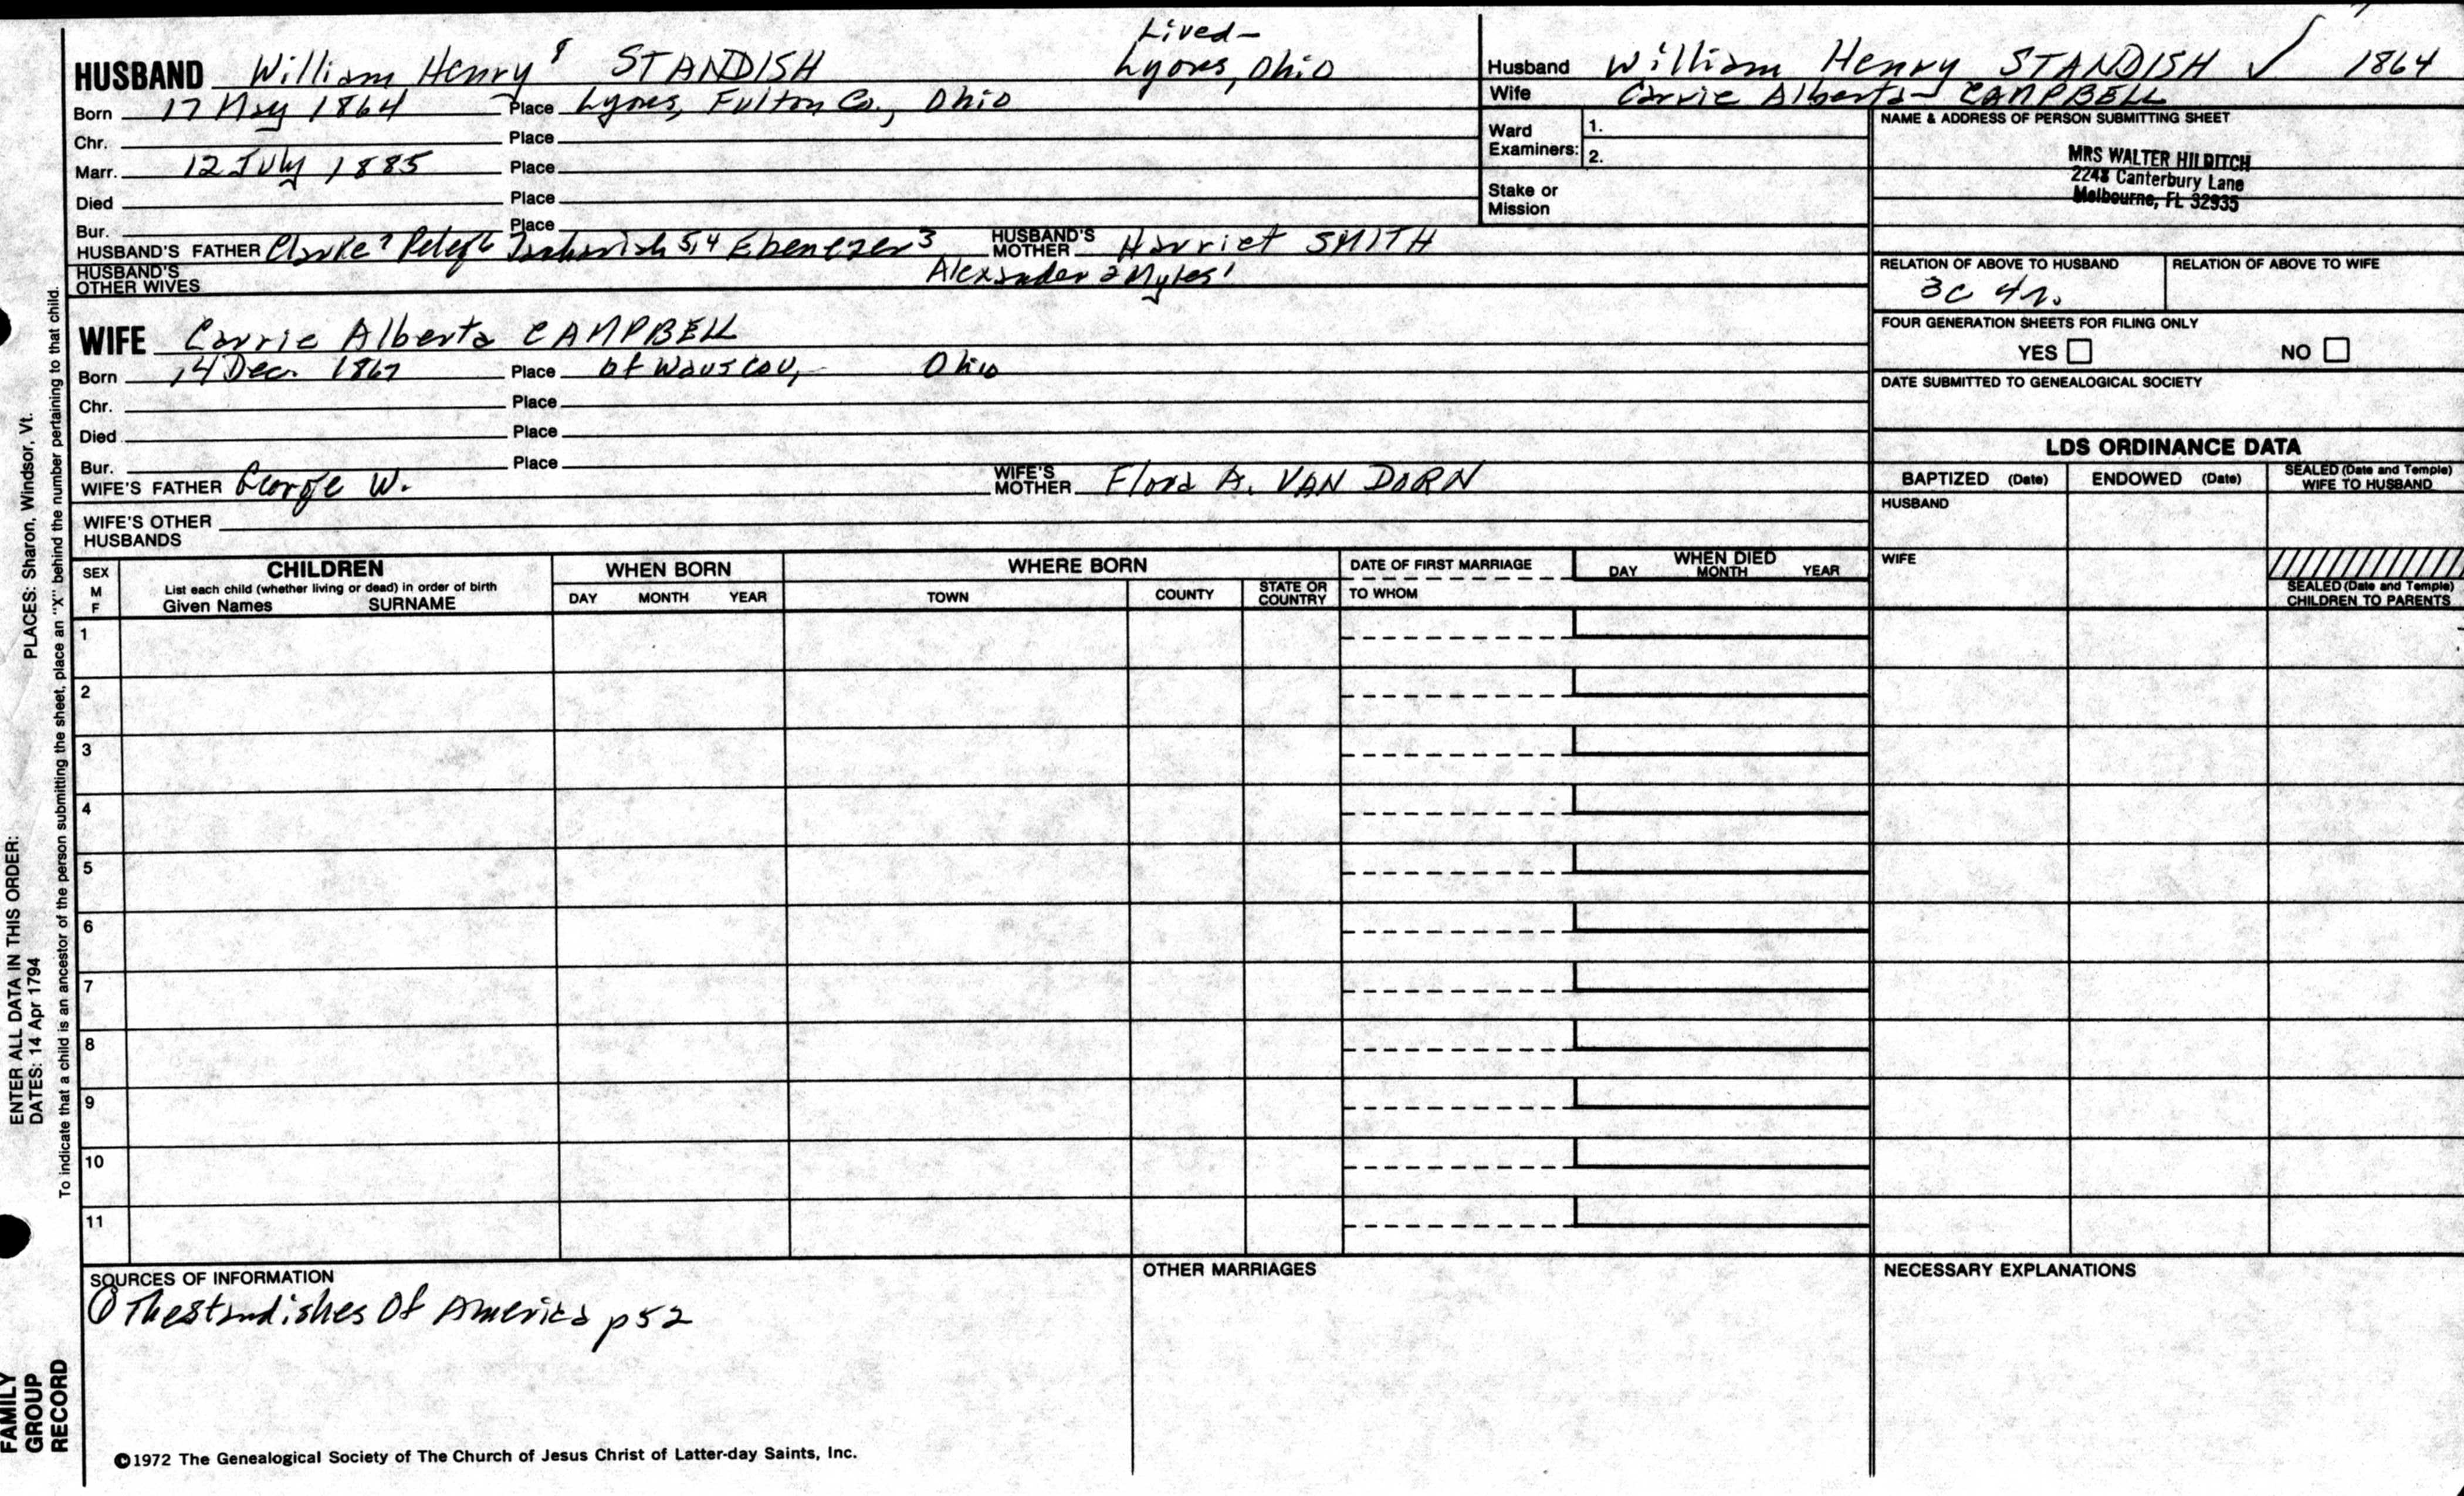 Lived-
HUSBAND William Henry 8 STANDISH Lyons, Ohio
Born 17 May 1864 Place Lyons, Fulton Co., Ohio
Chr. Place
Marr. 12 July 1885 Place
Died Place
Bur. Place
HUSBAND'S FATHER Clarke 7 Peleg 6 Zachariah 5,4 Ebenezer 3 HUSBAND'S MOTHER Harriet SMITH
HUSBAND'S OTHER WIVES Alexander 2 Myles 1
WIFE Carrie Alberta CAMPBELL
Born 14 Dec. 1867 Place of Wauscou, Ohio
Chr. Place
Died Place
Bur. Place
WIFE'S FATHER George W. WIFE'S MOTHER Flora A. VAN DORN
WIFE'S OTHER HUSBANDS
Husband William Henry STANDISH ✓ 1864
Wife Carrie Alberta CAMPBELL
Ward Examiners: 1.
2.
Stake or Mission
NAME & ADDRESS OF PERSON SUBMITTING SHEET
MRS WALTER HILDITCH
2248 Canterbury Lane
Melbourne, FL 32935
RELATION OF ABOVE TO HUSBAND RELATION OF ABOVE TO WIFE
3c 4r.
FOUR GENERATION SHEETS FOR FILING ONLY
YES NO
DATE SUBMITTED TO GENEALOGICAL SOCIETY
LDS ORDINANCE DATA
BAPTIZED (Date) ENDOWED (Date) SEALED (Date and Temple) WIFE TO HUSBAND
HUSBAND
WIFE
SEALED (Date and Temple) CHILDREN TO PARENTS
SEX M F
CHILDREN
List each child (whether living or dead) in order of birth
Given Names SURNAME
WHEN BORN
DAY MONTH YEAR
WHERE BORN
TOWN COUNTY STATE OR COUNTRY
DATE OF FIRST MARRIAGE
TO WHOM
WHEN DIED
DAY MONTH YEAR
1
2
3
4
5
6
7
8
9
10
11
SOURCES OF INFORMATION
① The Standishes Of America p52
OTHER MARRIAGES
NECESSARY EXPLANATIONS
©1972 The Genealogical Society of The Church of Jesus Christ of Latter-day Saints, Inc.
FAMILY
GROUP
RECORD
ENTER ALL DATA IN THIS ORDER:
DATES: 14 Apr 1794 PLACES: Sharon, Windsor, Vt.
To indicate that a child is an ancestor of the person submitting the sheet, place an "X" behind the number pertaining to that child.